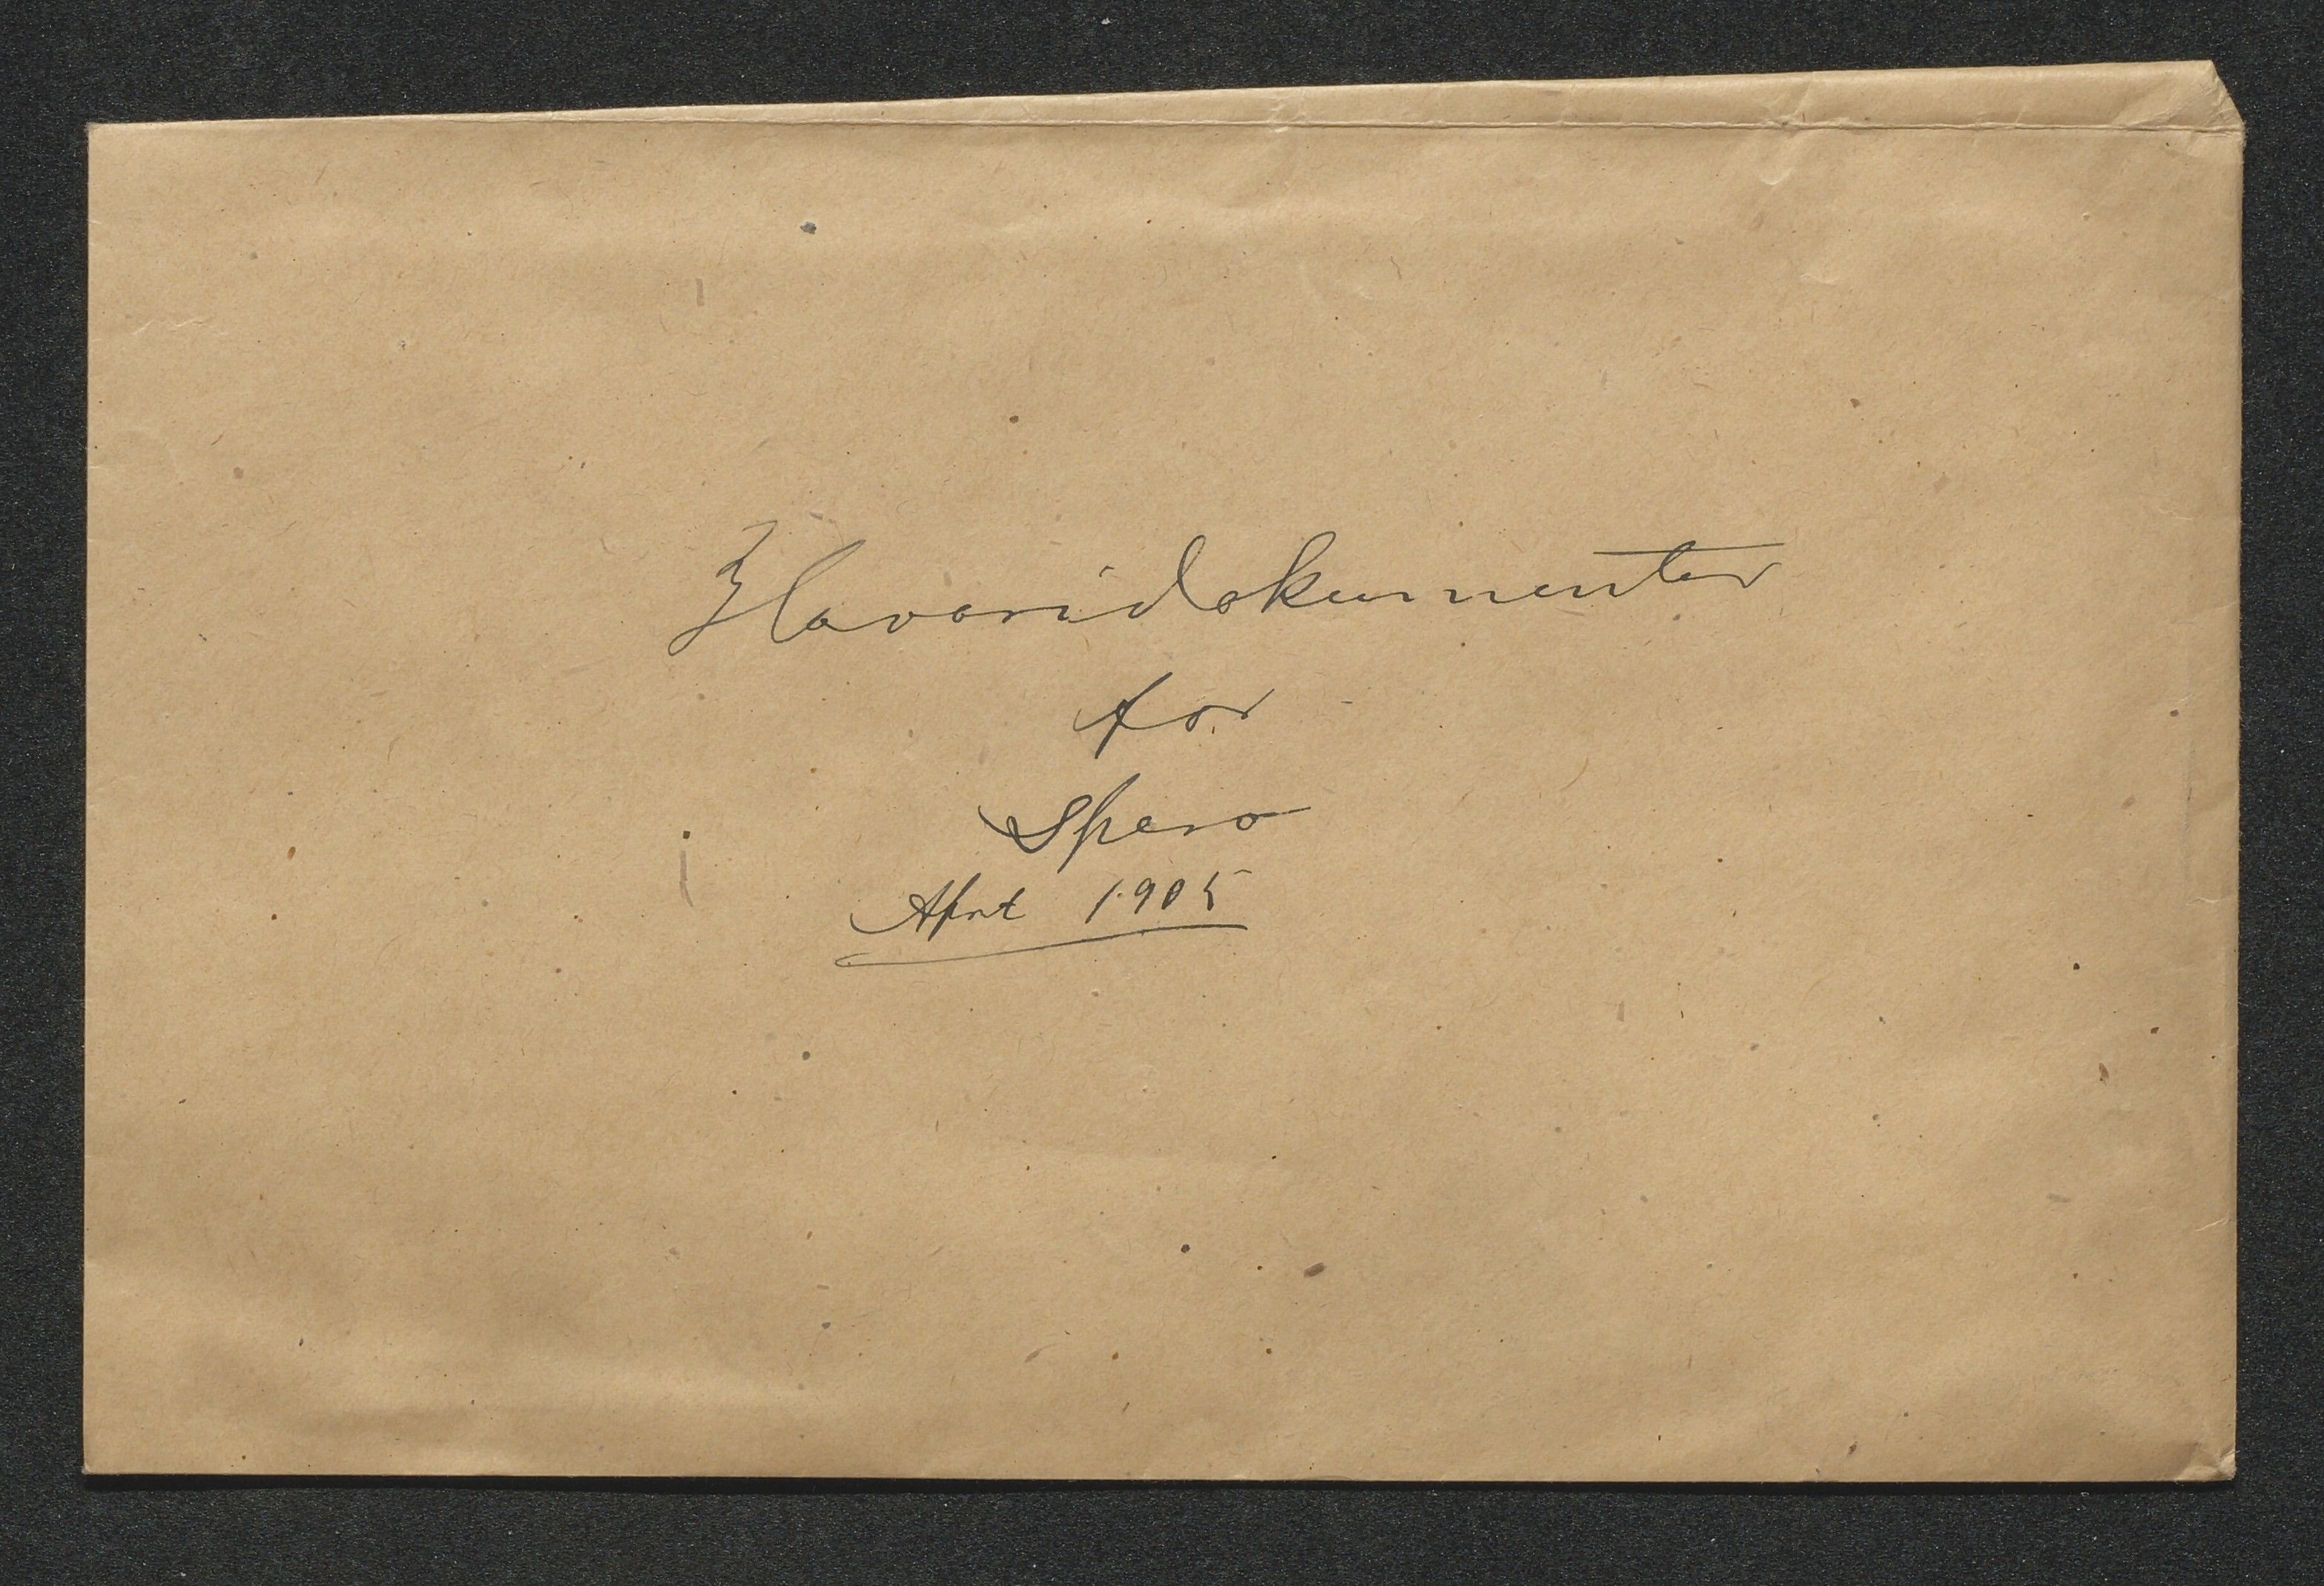 Havaridokumenter
for
Spero
April 1905